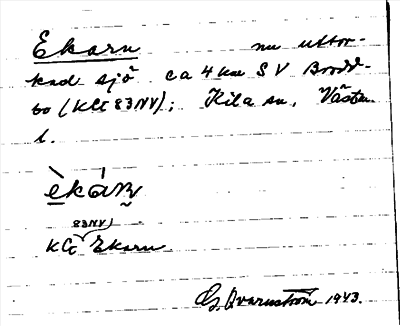 Ekarn nu uttor-
kad sjö ca 4 km SV Brodd-
bo (KCt 83 NV); Kila sn, Västm.
l.
èkáṇ
83 NV
KCt Ekarn
G. Qvarnström 1943.